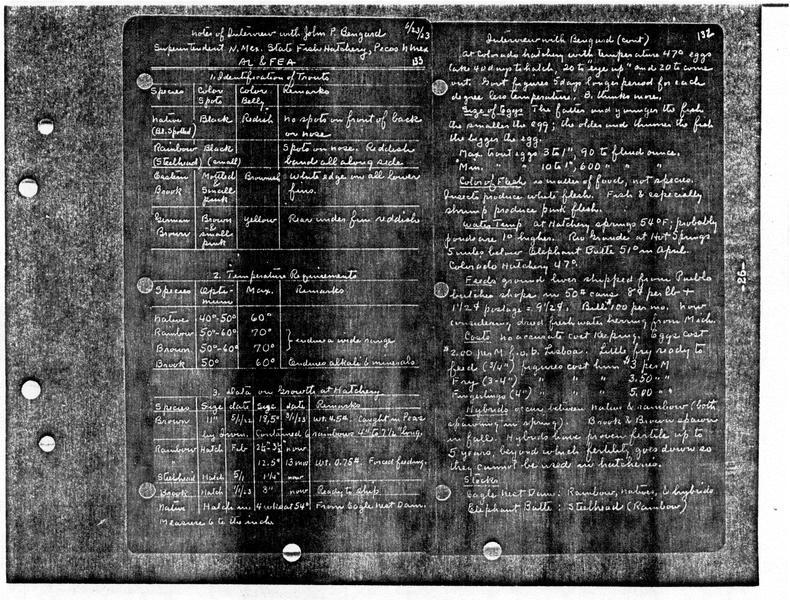 Notes of Interview with John P. Bengard 6/23/23
Superintendent N. Mex. State Fish Hatchery, Pecos N Mex
AL & FEA 133
1. Identification of Trouts
Species Color Spots Color Belly Remarks
Native (Bl. Spotted) Black Redish no spots on front of back or nose
Rainbow (Steelhead) Black (small) Spots on nose. Reddish band all along side
Eastern Brook Mottled & Small pink Brownish White edge on all lower fins.
German Brown Brown & small pink Yellow Rear under fin reddish
2. Temperature Requirements
Species Optimum Max. Remarks
Native 40°-50° 60°
Rainbow 50°-60° 70° } endure a wide range
Brown 50°-60° 70°
Brook 50° 60° Endures alkali & minerals
3. Data on Growth at Hatchery
Species Size date Size date Remarks
Brown 11" 5/1/22 18.5" 3/1/23 Wt. 4.5#. Caught in Pecos
by Bram. Contained 6 rainbows 4" to 7½" long.
Rainbow Hatch Feb 2½-3½ now
12.5" 13 mo Wt. 0.75#. Forced feeding.
Steelhead Hatch 5/1 1¼" now
Brook Hatch 1/1/23 3" now Ready to ship.
Native Hatch in 4 wks at 54° From Eagle Nest Dam.
Measure 6 to the inch
Interview with Bengard (cont) 132
At Colorado hatchery with temperature 47° eggs
take 40 days to hatch, 20 to "eye up" and 20 to come
out. Govt figures 5 days longer period for each
degree less temperature. B. thinks more.
Size of Eggs The fatter and younger the fish
the smaller the egg; the older and thinner the fish
the bigger the egg.
Max trout eggs 3 to 1", 90 to fluid ounce.
Min. " " 10 to 1", 600 " " "
Color of Flesh is matter of food, not species.
Insects produce white flesh. Fish & especially
shrimp produce pink flesh.
Water Temp at Hatchery springs 54°F. probably
ponds are 1° higher. Rio Grande at Hot Springs
5 miles below Elephant Butte 51° in April.
Colorado Hatchery 47°.
Feeds ground liver shipped from Pueblo
butcher shops in 50# cans 8¢ per lb +
1½¢ postage = 9½¢. Bill $100 per mo. Now
considering dried freshwater herring from Mich.
Costs no accurate cost keeping. Eggs cost
$2.00 per M f.o.b. Little fry ready to
feed (¾") figures cost him $3 per M
Fry (3-4") " " " 3.50 " "
Fingerlings (4") " " " 5.00 " "
Hybrids occur between Native & rainbow (both
spawning in spring). Brook & Brown spawn
in fall. Hybrids have proven fertile up to
5 years, beyond which fertility goes down so
they cannot be used in hatcheries.
Stocks
Eagle Nest Dam: Rainbow, natives, & hybrids
Elephant Butte: Steelhead (Rainbow)
-26-